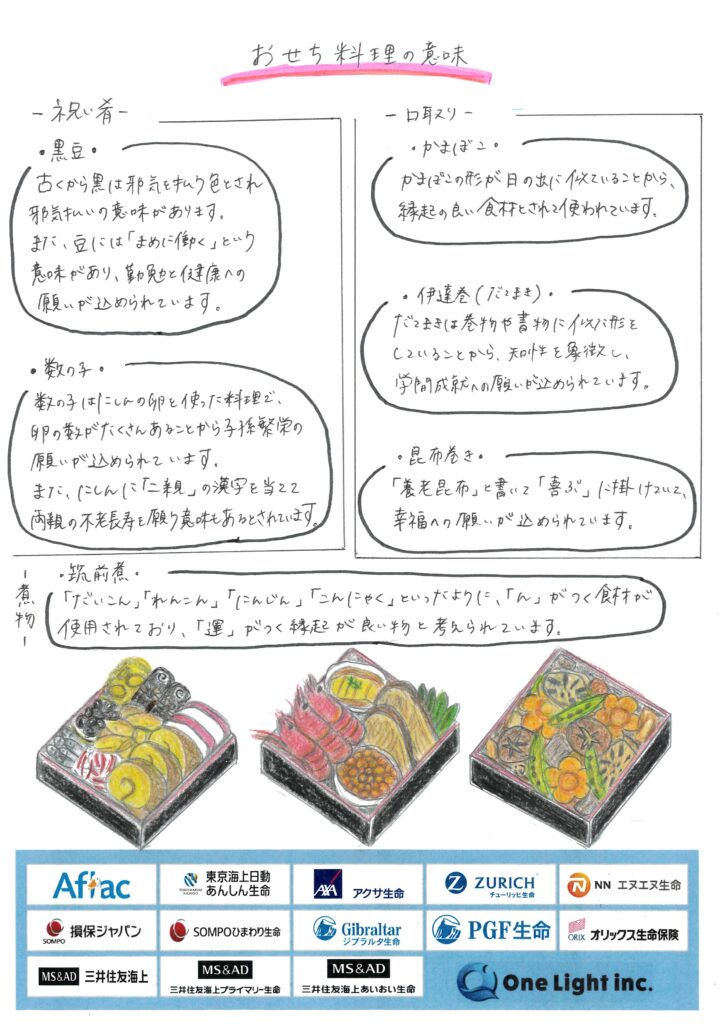 おせち料理の意味
－祝い肴－
・黒豆・
古くから黒は邪気を払う色とされ
邪気払いの意味があります。
また、豆には「まめに働く」という
意味があり、勤勉と健康への
願いが込められています。
・数の子・
数の子はにしんの卵を使った料理で、
卵の数がたくさんあることから子孫繁栄の
願いが込められています。
また、にしんに「二親」の漢字を当てて
両親の不老長寿を願う意味もあるとされています。
－口取り－
・かまぼこ・
かまぼこの形が日の出に似ていることから、
縁起の良い食材とされて使われています。
・伊達巻(だてまき)・
だてまきは巻物や書物に似た形を
していることから、知性を象徴し、
学問成就への願いが込められています。
・昆布巻き・
「養老昆布」と書いて「喜ぶ」に掛けていて、
幸福への願いが込められています。
－煮物－
・筑前煮・
「だいこん」「れんこん」「にんじん」「こんにゃく」といったように、「ん」がつく食材が
使用されており、「運」がつく縁起が良い物と考えられています。
Aflac
東京海上日動
あんしん生命
TOKIOMARINE
NICHIDO
AXA アクサ生命
ZURICH
チューリッヒ生命
NN エヌエヌ生命
SOMPO 損保ジャパン
SOMPOひまわり生命
Gibraltar
ジブラルタ生命
PGF生命
ORIX オリックス生命保険
MS&AD 三井住友海上
MS&AD
三井住友海上プライマリー生命
MS&AD
三井住友海上あいおい生命
One Light inc.